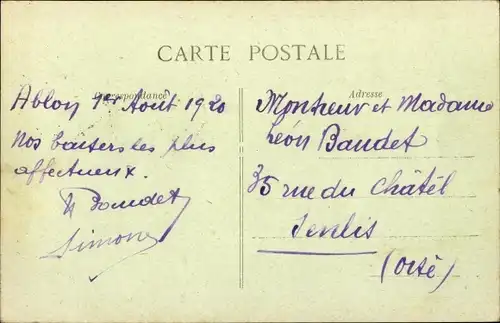 CARTE POSTALE
Correspondance
Ablon 1er Août 1920
Nos baisers les plus
affectueux.
Baudet
Simone
Adresse
Monsieur et Madame
Léon Baudet
35 rue du Châtel
Senlis
(Oise)